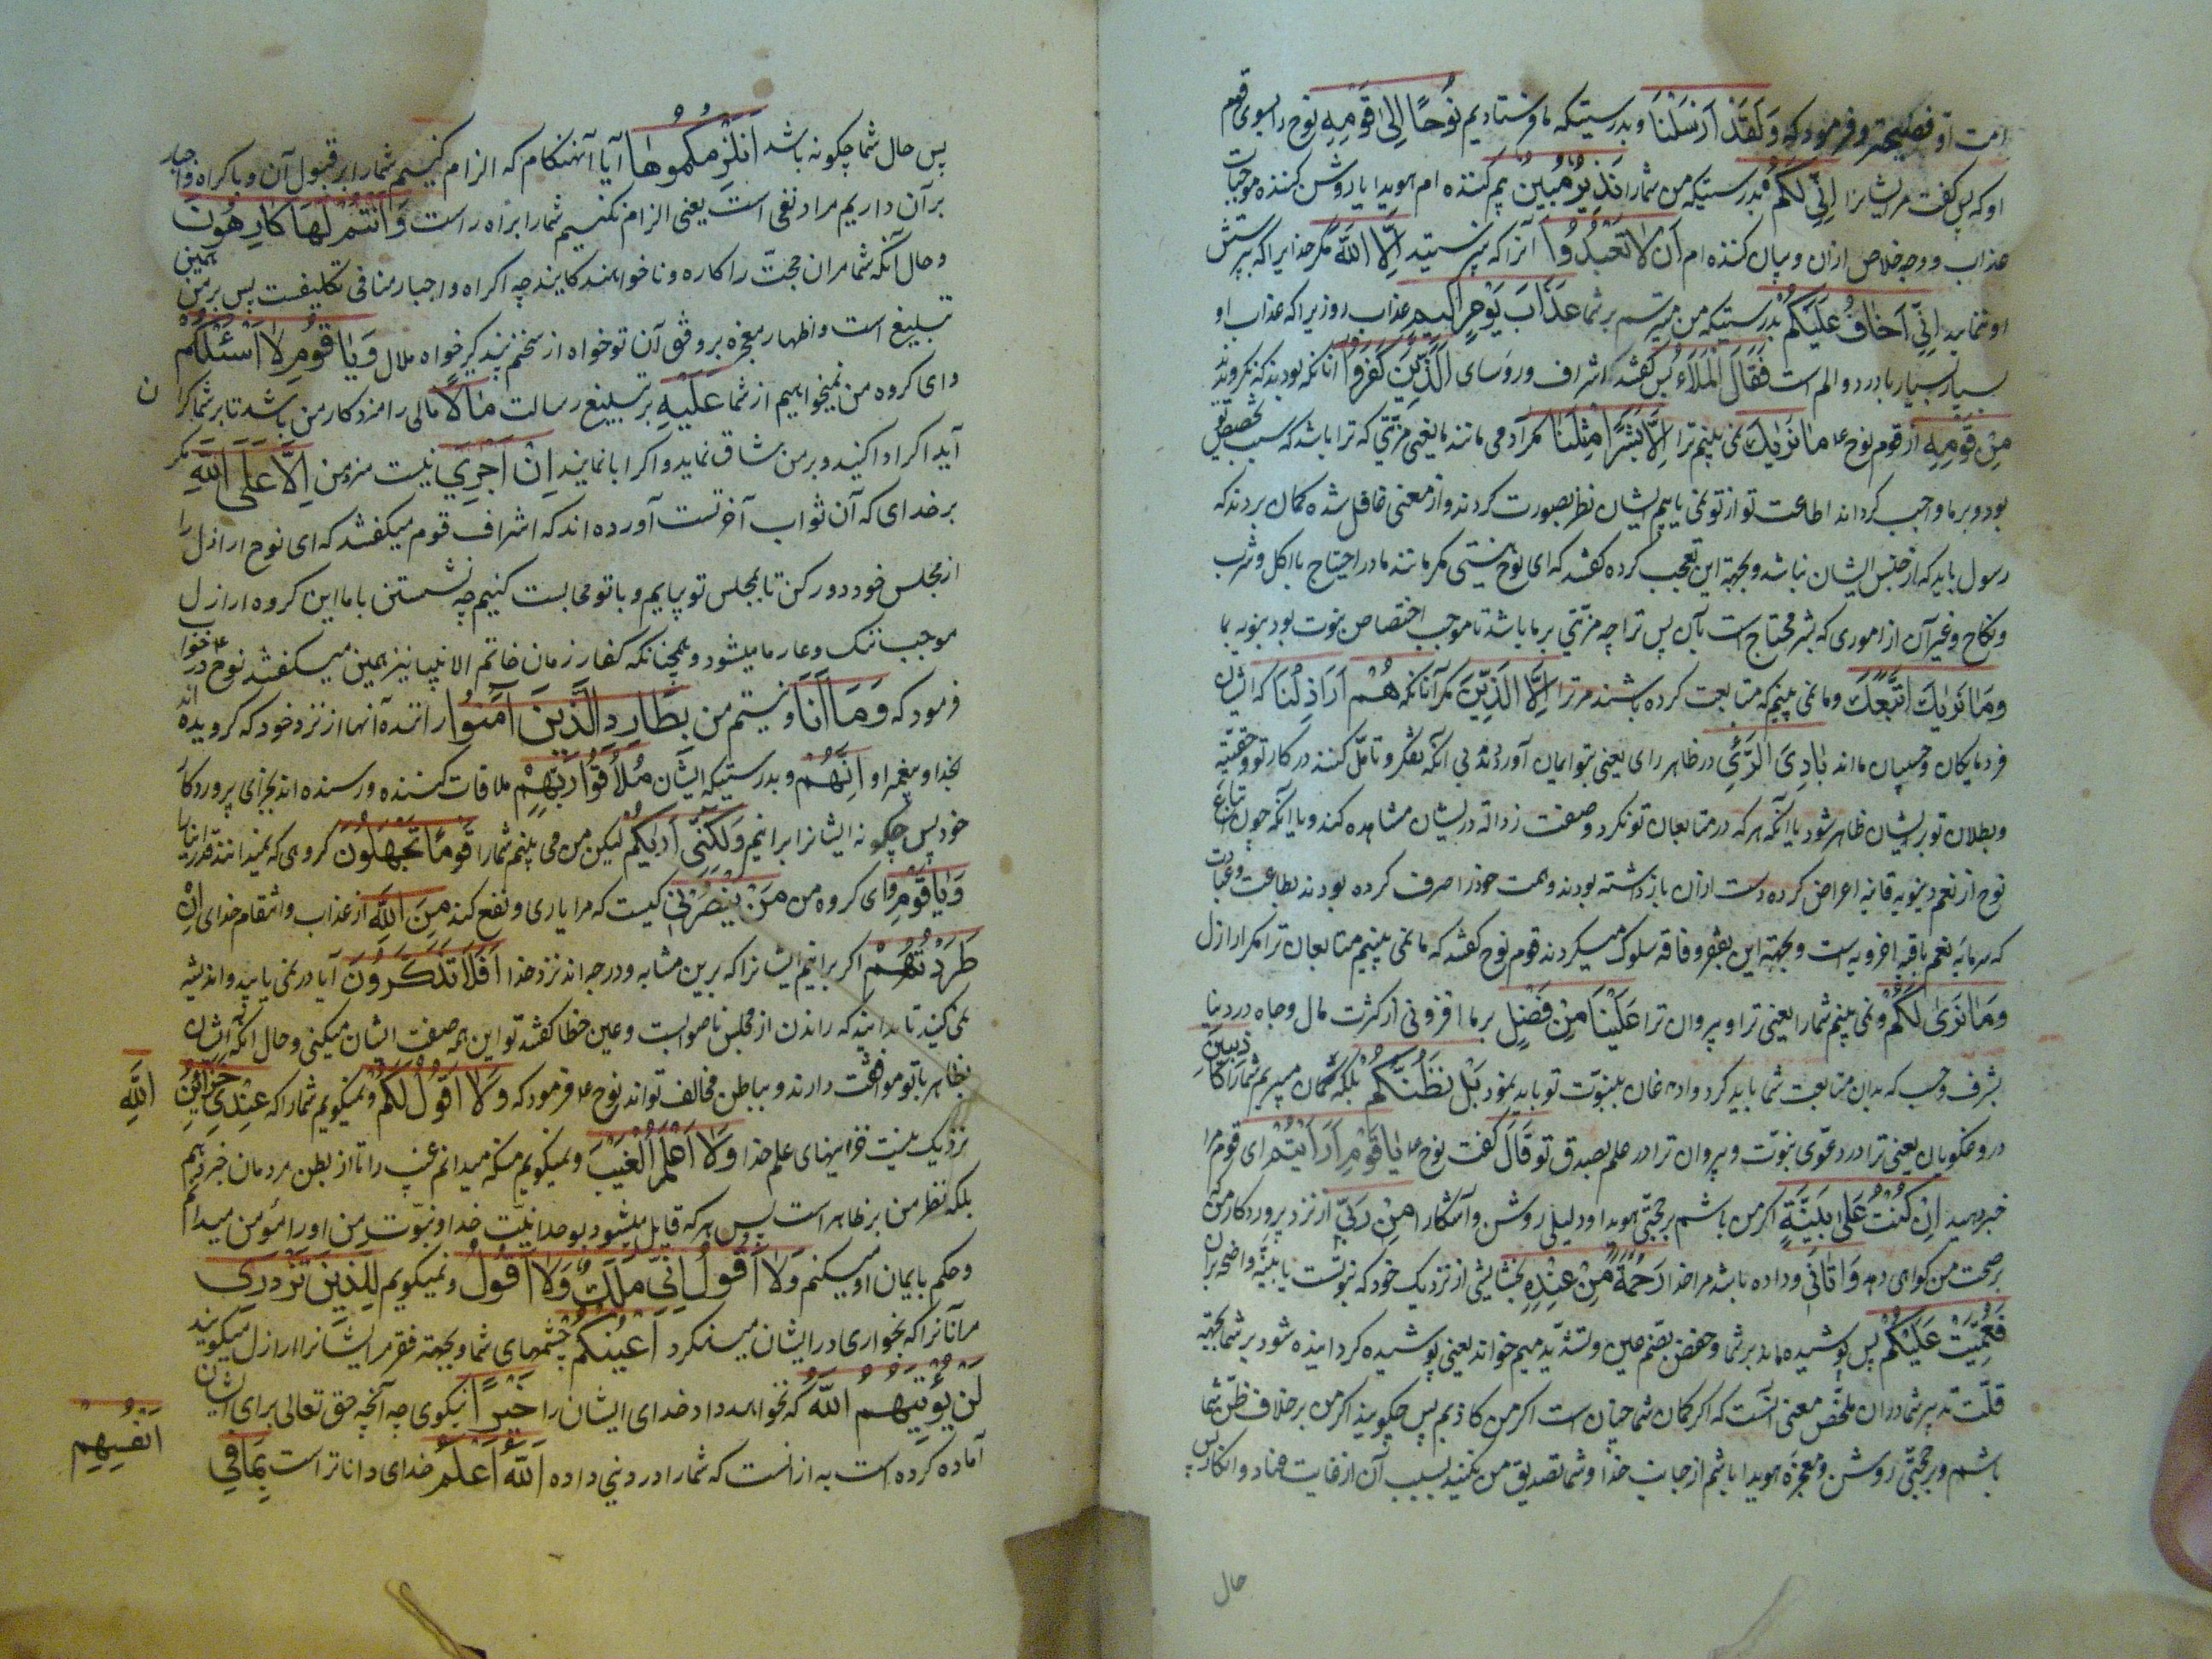 امت او فصیحة و فرمود که وَلَقَدْ اَرْسَلْنَا و بدرستیکه ما فرستادیم نُوحًا اِلیٰ قَوْمِهِ نوح را بسوی قوم
او که پس گفت مر ایشانرا اِنِّی لَکُمْ بدرستیکه من شمارا نَذِیرٌ مُبِینٌ بیم کننده ام هویدا یا روشن کننده موجبات
عذاب و وجه خلاص ازان و بیان کننده ام اَنْ لَا تَعْبُدُوا آنرا که نپرستید اِلَّا اللّٰهَ مکر خدایرا که پرستش
او نمایید اِنِّی اَخَافُ عَلَیْکُمْ بدرستیکه من میترسم بر شما عَذَابَ یَوْمٍ اَلِیمٍ عذاب روزیرا که عذاب او
بسیار بسیار با درد و الم است فَقَالَ الْمَلَأُ پس گفتند اشراف و روسای الَّذِینَ کَفَرُوا آنانکه بودند که نکرویدند
مِنْ قَوْمِهِ از قوم نوح ع مَا نَرٰیكَ نمی بینیم ترا اِلَّا بَشَرًا مِثْلَنَا مکر آدمی مانند ما یعنی مزیتی که ترا باشد که سبب تخصیص تو
بود و بر ما واجب کرداند اطاعت تو از تو نمی یابیم ایشان نظر بصورت کردند و از معنی غافل شده کمان بردند که
رسول باید که از جنس ایشان نباشد و بجهة این تعجب کرده گفتند که ای نوح نیستی مکر مانند ما در احتیاج با اکل و شرب
و نکاح و غیر آن از اموری که بشر محتاج است بآن پس ترا چه مزیتی بر ما باشد تا موجب اختصاص نبوت بود بتو نه بما
وَمَا نَرٰیكَ اتَّبَعَكَ و ما نمی بینیم که متابعت کرده باشند مر ترا اِلَّا الَّذِینَ مکر آنانکه هُمْ اَرَاذِلُنَا که ایشان
فرومایکان و خسیسان ما اند بَادِیَ الرَّأْیِ در ظاهر رای یعنی بتو ایمان آوردند بی آنکه تفکر و تامل کنند در کار تو و حقیّة
و بطلان تو بر ایشان ظاهر شود یا آنکه هر که در متابعان تو نکرد و صفت رذاله در ایشان مشاهده کند و یا آنکه چون اتباع
نوح از نعم دنیویه فانیه اعراض کرده دست ازان باز داشته بودند و همت خود را صرف کرده بودند بطاعت و عبادت
که سرمایه نعم باقیه اخرویه است و بجهة این بفقر و فاقه سلوک میکردند قوم نوح گفتند که ما نمی بینیم متابعان ترا مکر اراذل
وَمَا نَرٰی لَکُمْ و نمی بینیم شمارا یعنی ترا و پیروان ترا عَلَیْنَا مِنْ فَضْلٍ بر ما افزونی از کثرت مال و جاه در دنیا
بشرف و حسب که بدان متابعت شما باید کرد و اذعان بنبوّت تو باید نمود بَلْ نَظُنُّکُمْ بلکه کمان میبریم شمارا کَاذِبِینَ
دروغکویان یعنی ترا در دعوی نبوّت و پیروان ترا در علم بصدق تو قَالَ گفت نوح ع یَا قَوْمِ اَرَأَیْتُمْ ای قوم مرا
خبر دهید اِنْ کُنْتُ عَلیٰ بَیِّنَةٍ اکر من باشم بر حجتی هویدا و دلیلی روشن و آشکارا مِنْ رَبِّی از نزد پروردکار من که
بر صحت من کواهی دهد وَاٰتَانِی و داده باشد مرا خدا رَحْمَةً مِنْ عِنْدِهِ بخشایشی از نزدیک خود که نبوّت یا بیّنه واضحه بران
فَعُمِّیَتْ عَلَیْکُمْ پس پوشیده ماند بر شما و حفص بضم عین و تشدید میم خواند یعنی پوشیده کردانیده شود بر شما بجهة
قلّت تدبیر شما دران ملخّص معنی آنست که اکر کمان شما چنان است اکر من کاذبم پس چکویید اکر من بر خلاف ظنّ شما
باشم و بر حجتی روشن و معجزه هویدا باشم از جانب خدا و شما تصدیق من نکنید بسبب آن از غایت عناد و انکار پس
حال
پس حال شما چکونه باشد اَنُلْزِمُکُمُوهَا آیا آنهنکام که الزام کنیم شمارا بر قبول آن و باکراه و اجبار
بر آن داریم مراد نفی است یعنی الزام نکنیم شمارا براه راست وَاَنْتُمْ لَهَا کَارِهُونَ
و حال آنکه شما مران حجّت را کاره و ناخواهند کایند چه اکراه و اجبار منافی تکلیفست پس بر من همین
تبلیغ است و اظهار معجزه بر وفق آن تو خواه از سخنم پند گیر خواه ملال وَیَا قَوْمِ لَا اَسْئَلُکُمْ
و ای کروه من نمیخواهیم از شما عَلَیْهِ بر تبلیغ رسالت مَالًا مالی را مزد کار من باشد تا بر شما کران
آید اکر ادا کنید و بر من شاق نماید و اکر ابا نمایند اِنْ اَجْرِیَ نیست مزد من اِلَّا عَلَی اللّٰهِ مکر
بر خدای که آن ثواب آخرتست آورده اند که اشراف قوم میکفتند که ای نوح اراذل را
از مجلس خود دور کن تا بمجلس تو بیایم و با تو مجالست کنیم چه نشستن با ما این کروه اراذل
موجب ننک و عار ما میشود و همچنانکه کفار زمان خاتم الانبیا نیز همین میکفتند نوح ع در جواب
فرمود که وَمَا اَنَا و نیستم من بِطَارِدِ الَّذِینَ آمَنُوا راننده آنها از نزد خود که کرویده اند
بخدا و پیغمبر او اِنَّهُمْ و بدرستیکه ایشان مُلَاقُوا رَبِّهِمْ ملاقات کننده و رسنده اند بجزای پروردکار
خود پس چکونه ایشانرا برانیم وَلٰکِنِّی اَرٰیکُمْ لیکن من می بینم شمارا قَوْمًا تَجْهَلُونَ کروهی که نمیدانند قدر ایشانرا
وَیَا قَوْمِ و ای کروه من مَنْ یَنْصُرُنِی کیست که مرا یاری و نفع کند مِنَ اللّٰهِ از عذاب و انتقام خدای اِنْ
طَرَدْتُهُمْ اکر برانیم ایشانرا که برین مشابه و درجه اند نزد خدا اَفَلَا تَذَکَّرُونَ آیا در نمی یابید و اندیشه
نمی کنید تا بدانید که راندن از مجلس ناصوابست و عین خطا گفتند تو این همه صفت ایشان میکنی و حال آنکه ایشان
بظاهر با تو موافقت دارند و بباطن مخالف تو اند نوح ع فرمود که وَلَا اَقُولُ لَکُمْ و نمیکویم شمارا که عِنْدِی خَزَائِنُ اللّٰهِ
نزدیک منست خزاینهای علم خدا وَلَا اَعْلَمُ الْغَیْبَ و نمیکویم منکه میدانم غیب را تا از بطن مردمان خبر دهم
بلکه نظر من بر ظاهر است پس هر که قایل میشود بوحدانیّت خدا و نبوّت من او را مؤمن میدانم
و حکم بایمان او میکنم وَلَا اَقُولُ اِنِّی مَلَكٌ وَلَا اَقُولُ و نمیکویم لِلَّذِینَ تَزْدَرِی
مر آنانرا که بخواری در ایشان مینکرد اَعْیُنُکُمْ چشمهای شما و بجهة فقر مر ایشانرا اراذل میکویید
لَنْ یُؤْتِیَهُمُ اللّٰهُ که نخواهد داد خدای ایشان را خَیْرًا نیکوی چه آنچه حق تعالی برای ایشان
آماده کرده است به ازانست که شمارا در دنیی داده اَللّٰهُ اَعْلَمُ خدای داناتر است بِمَا فِی اَنْفُسِهِمْ